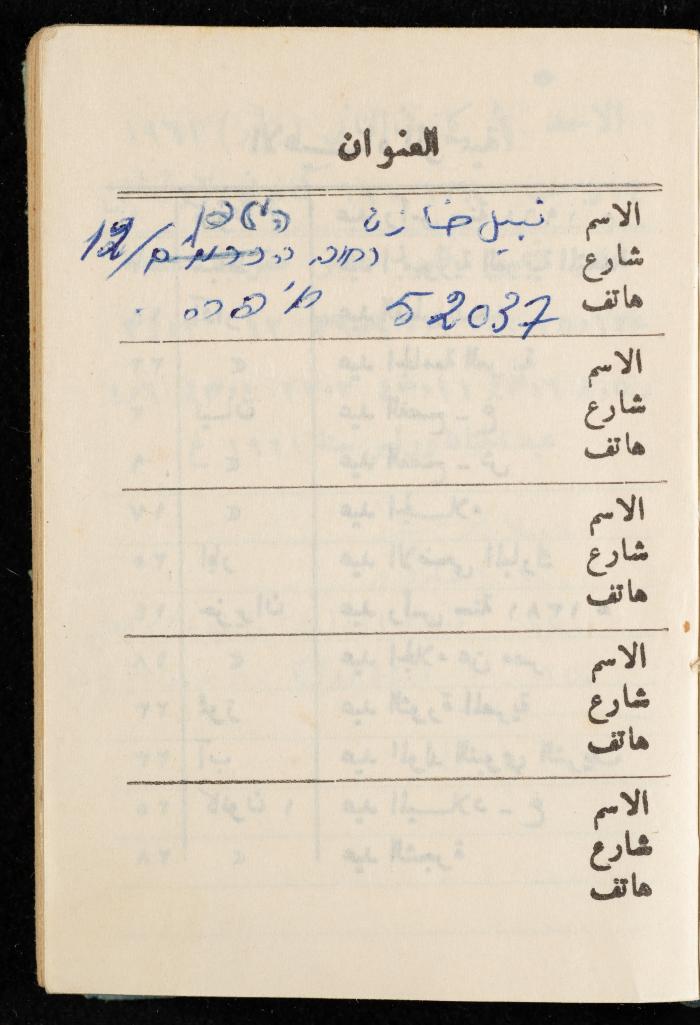 العنوان
الاسم نبيل خازن
شارع רחוב /12
هاتف 52037 חיפה.
الاسم
شارع
هاتف
الاسم
شارع
هاتف
الاسم
شارع
هاتف
الاسم
شارع
هاتف